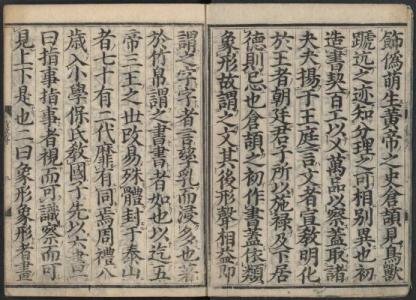 飾偽萌生黃帝之史倉頡見鳥獸
蹏迒之迹知分理之可相別異也初
造書契百工以乂萬品以察蓋取諸
夬夬揚于王庭言文者宣教明化
於王者朝廷君子所以施祿及下居
德則忌也倉頡之初作書蓋依類
象形故謂之文其後形聲相益即
謂之字字者言孳乳而浸多也著
於竹帛謂之書書者如也以迄五
帝三王之世改易殊體封于泰山
者七十有二代靡有同焉周禮八
歲入小學保氏教國子先以六書一
曰指事指事者視而可識察而可
見上下是也二曰象形象形者畫